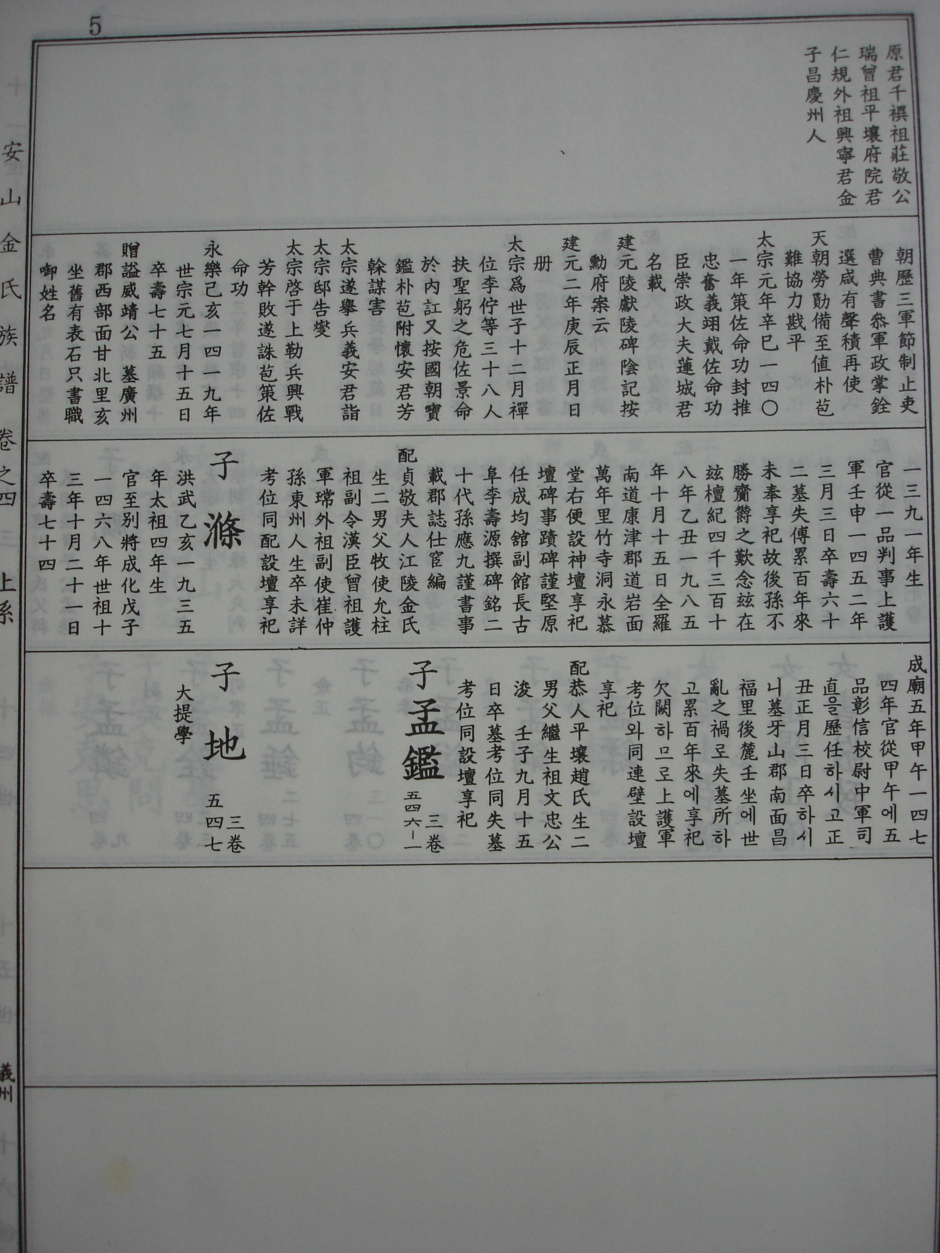 5
安山金氏族譜 卷之四 上系
義州
原君千禩祖莊敬公
瑞曾祖平壤府院君
仁規外祖興寧君金
子昌慶州人
朝歷三軍節制止吏
曹典書叅軍政掌銓
選咸有聲積再使
天朝勞勩備至値朴苞
難協力戡平
太宗元年辛巳一四〇
一年策佐命功封推
忠奮義翊戴佐命功
臣崇政大夫蓮城君
名載
建元陵獻陵碑陰記按
勳府案云
建元二年庚辰正月日
册
太宗爲世子十二月禪
位李佇等三十八人
扶聖躬之危佐景命
於內訌又按國朝寶
鑑朴苞附懷安君芳
榦謀害
太宗遂擧兵義安君詣
太宗邸告燮
太宗啓于上勒兵興戰
芳幹敗遂誅苞策佐
命功
永樂己亥一四一九年
世宗元七月十五日
卒壽七十五
贈謚威靖公 墓廣州
郡西部面甘北里亥
坐舊有表石只書職
啣姓名
一三九一年生
官從一品判事上護
軍壬申一四五二年
三月三日卒壽六十
二墓失傳累百年來
未奉享祀故後孫不
勝霣爵之歎念玆在
玆檀紀四千三百十
八年乙丑一九八五
年十月十五日全羅
南道康津郡道岩面
萬年里竹寺洞永慕
堂右便設神壇享祀
壇碑事蹟碑謹堅原
任成均舘副館長古
阜李壽源撰碑銘二
十代孫應九謹書事
載郡誌仕宦編
配貞敬夫人江陵金氏
生二男父牧使允柱
祖副令漢臣曾祖護
軍瑺外祖副使崔仲
孫東州人生卒未詳
考位同配設壇享祀
子 滌
洪武乙亥一九三五
年太祖四年生
官至別將成化戊子
一四六八年世祖十
三年十月二十一日
卒壽七十四
成廟五年甲午一四七
四年官從甲午에五
品彰信校尉中軍司
直을歷任하시고正
丑正月三日卒하시
니墓牙山郡南面昌
福里後麓壬坐에世
亂之禍로失墓所하
고累百年來에享祀
欠闕하므로上護軍
考位와同連壁設壇
享祀
配恭人平壤趙氏生二
男父繼生祖文忠公
浚 壬子九月十五
日卒墓考位同失墓
考位同設壇享祀
子 孟鑑 三卷
五四六-一
子 地 三卷
五四七
大提學